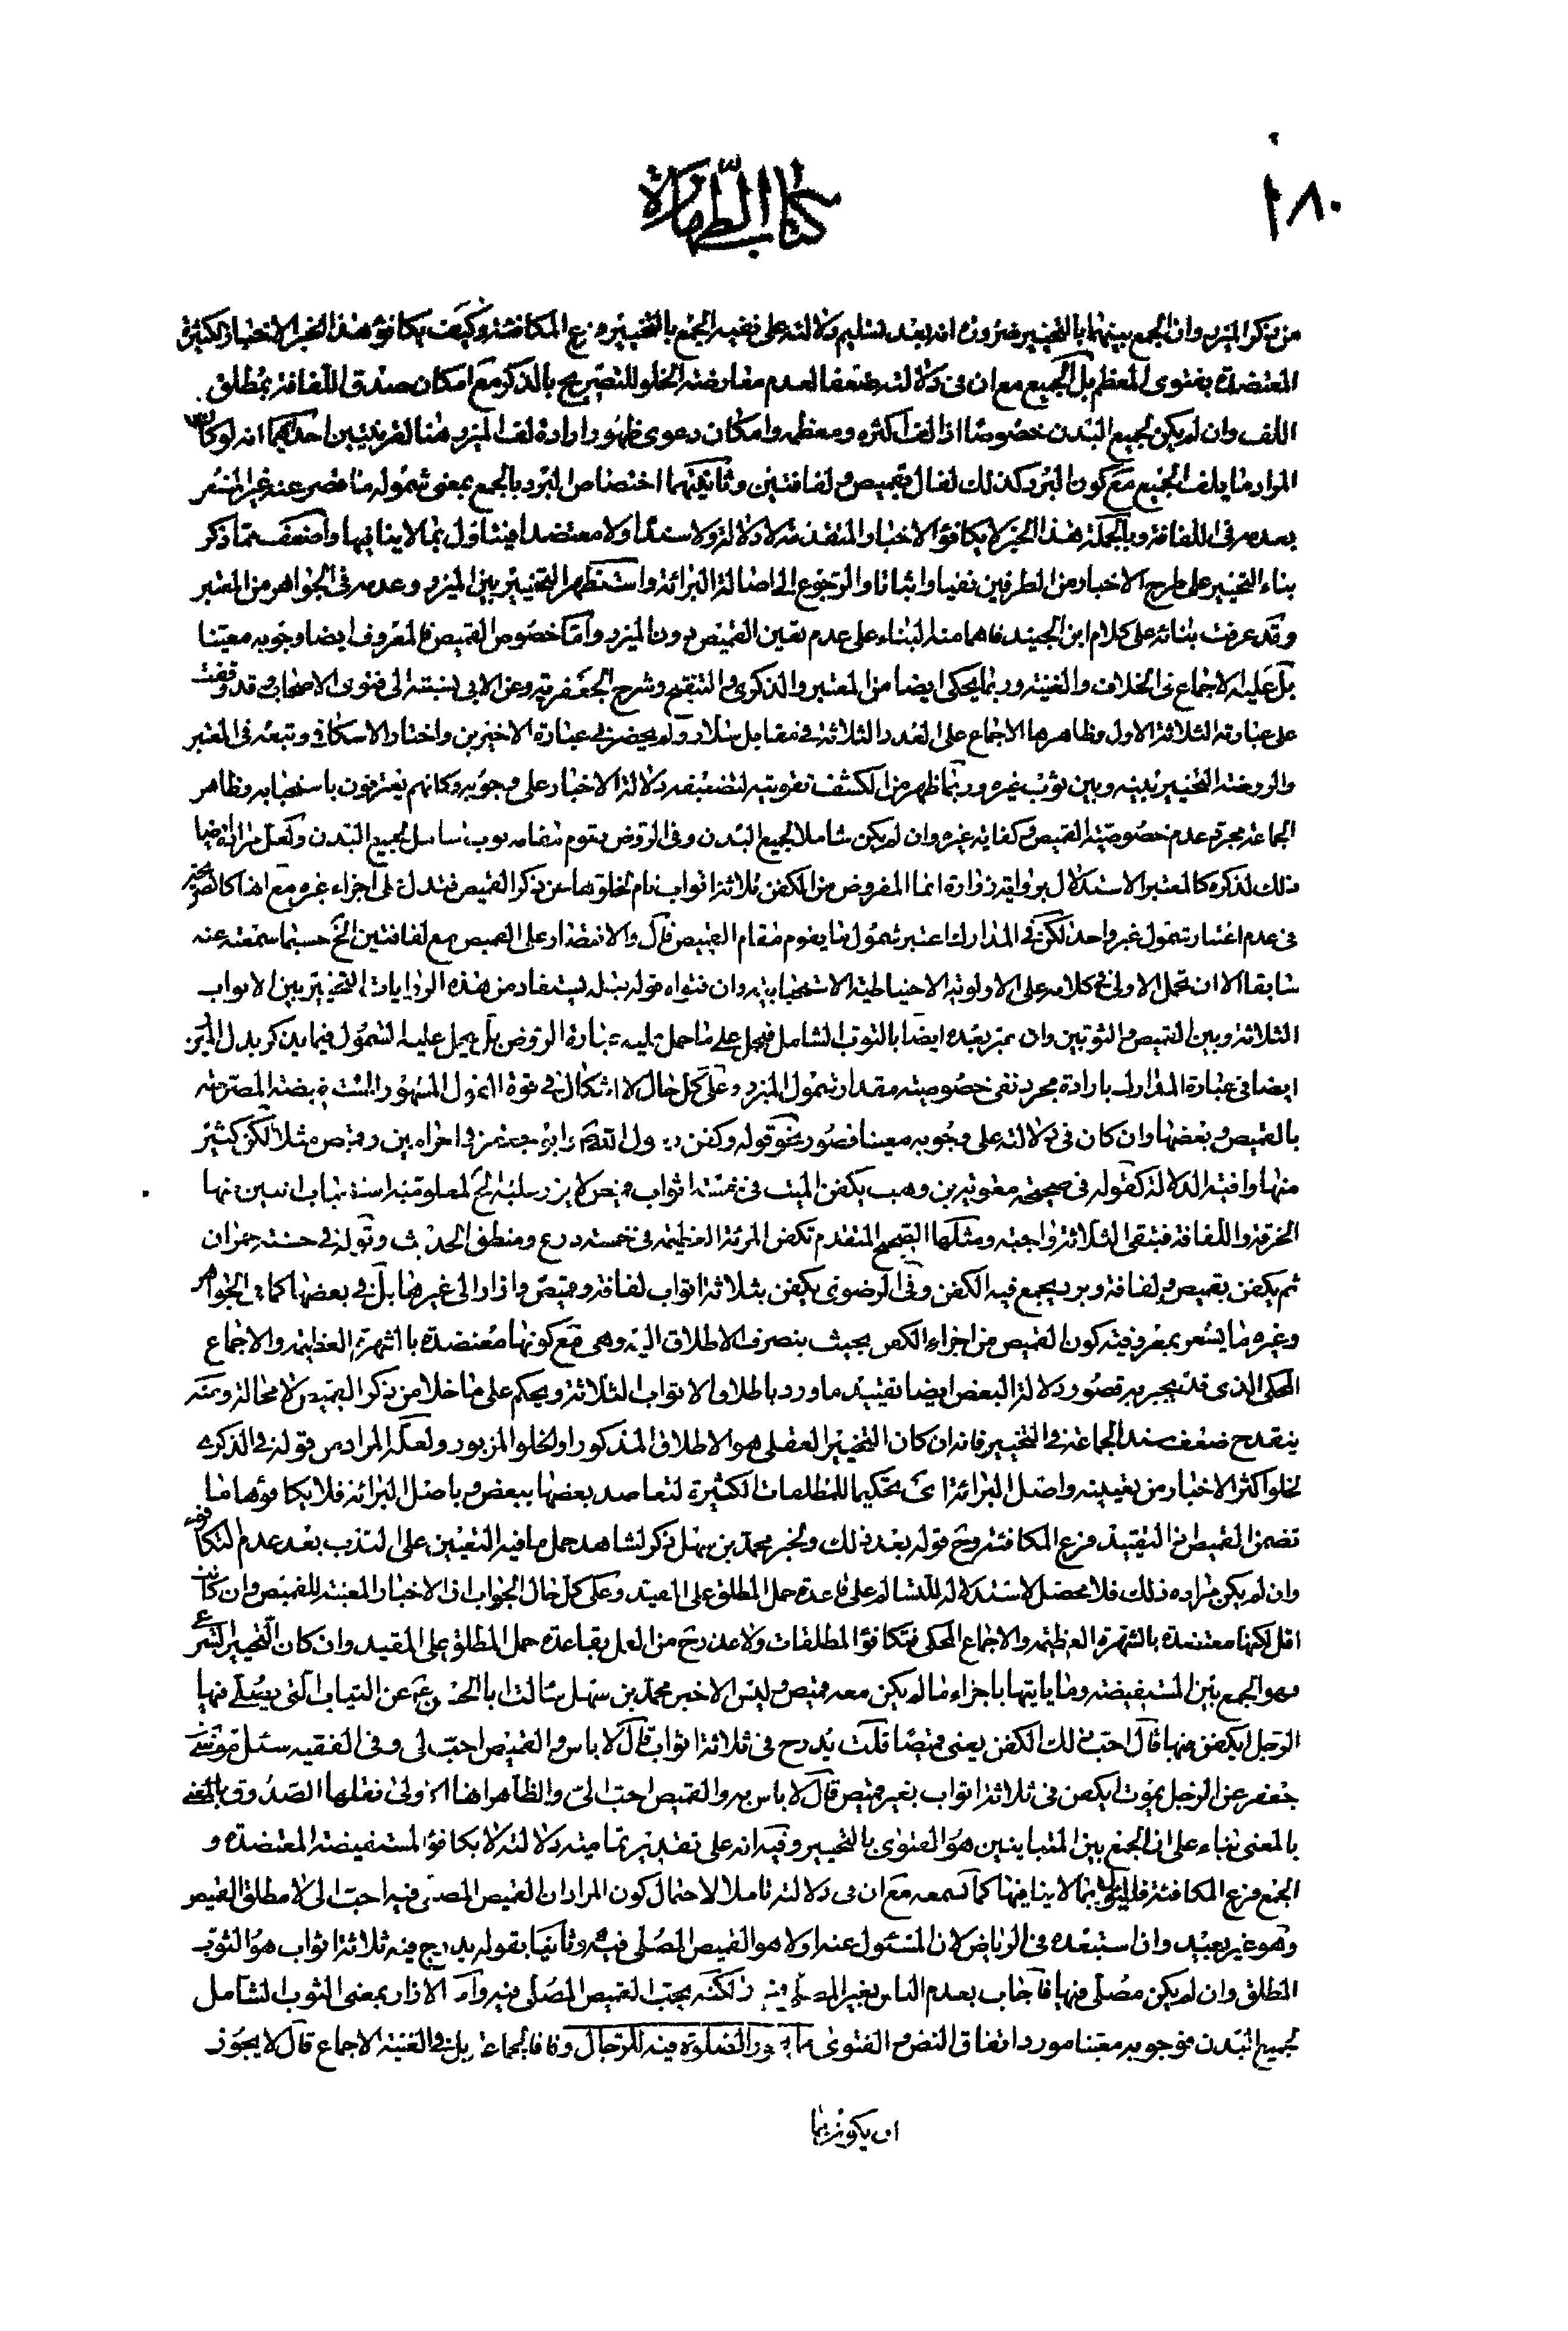 ١٨٠
كتاب الطهارة
من ذكر الميزر وان الجمع بينهما بالتخيير ضرورة انه بعد تسليم دلالته على نفيه الجمع بالتخيير فرع المكافئة وكيف يكافؤ هذا الخبر الاخبار الكثيرة
المعتضدة بفتوى المعظم بل الجميع مع ان في دلالته ضعفا لعدم معارضة الخلو للتصريح بالذكر مع امكان صدق اللفافة بمطلق
اللف وان لم يكن لجميع البدن خصوصا اذا لف اكثره ومعظمه وامكان دعوى ظهور ارادة لف الميزر هنا لقرينتين احديهما انه لو كان
المراد ما يلف الجميع مع كون البرد كذلك لقال قميص و لفافتين وثانيتهما اختصاص البرد بالجمع بمعنى شموله ما قصر عنه غيره المشعر
بعدمه في اللفافة وبالجملة هذا الخبر لا يكافؤ الاخبار المتقدمة لا دلالة ولا سندا ولا معتضدا فيتناول بما لا ينافيها واضعف مما ذكر
بناء التخيير على طرح الاخبار من الطرفين نفيا واثباتا والرجوع الى اصالة البرائة واستظهر التخيير بين الميزر وعدمه في الجواهر من المعتبر
وقد عرفت بنائه على كلام ابن الجنيد فاهما منه البناء على عدم تعين القميص دون الميزر واما خصوص القميص فالمعروف ايضا وجوبه معينا
بل عليه الاجماع في الخلاف والغنية وربما يحكى ايضا من المعتبر والذكرى و التنقيح وشرح الجعفرية وعن الابي نسبته الى فتوى الاصحاب و قد وقفت
على عبارة الثلاثة الاول وظاهرها الاجماع على العدد الثلاثة في مقابل سلار ولم يحضرني عبارة الاخيرين واختار الاسكافي وتبعه في المعتبر
والروضة التخيير بينه وبين ثوب غيره وربما ظهر من الكشف تقويته لتضعيفه دلالة الاخبار على وجوبه وكانهم يعترفون باستحبابه وظاهر
الجماعة مجرد عدم خصوصية القميص و كفاية غيره وان لم يكن شاملا لجميع البدن وفي الروض يقوم مقامه ثوب شامل لجميع البدن ولعل مراده ايضا
ذلك لذكره كالمعتبر الاستدلال برواية زرارة انما المفروض من الكفن ثلاثة اثواب تام لخلوها عن ذكر القميص فتدل على اجزاء غيره مع انها كالصريحة
في عدم اعتبار شمول غير واحد لكن في المدارك اعتبر شمول ما يقوم مقام القميص قال والاقتصار على القميص مع لفافتين الخ حسبما سمعته عنه
سابقا الا ان تحمل الاولى في كلامه على الاولوية الاحتياطية الاستحبابية وان فتواه قوله قبله يستفاد من هذه الروايات التخيير بين الاثواب
الثلاثة وبين القميص و الثوبين وان عبر بعده ايضا بالثوب الشامل فيحمل على ما حمل عليه عبارة الروض بل يحمل عليه الشمول فيما يذكر بدل الميزر
ايضا في عبارة المدارك بارادة مجرد نفي خصوصية مقدار شمول الميزر وعلى كل حال لا اشكال في قوة القول المشهور المستفيضة المصرحة
بالقميص و بعضها وان كان في دلالته على وجوبه معينا قصور نحو قوله وكفن رسول الله وابو جعفر في احرامين وقميص مثلا لكن كثير
منها وافية الدلالة كقوله في صحيحة معوية بن وهب يكفن الميت في خمسة اثواب قميص لا يزر عليه الخ لمعلومية استحباب اثنين منها
الخرقة واللفافة فتبقى الثلاثة واجبة ومثلها الصحيح المتقدم تكفن المرئة العظيمة في خمسة درع ومنطق الحديث وقوله في حسنة حمران
ثم يكفن بقميص ولفافة وبرد يجمع فيه الكفن وفي الرضوي يكفن بثلاثة اثواب لفافة وقميص وازار الى غيرها بل في بعضها كما في الجواهر
وغيره ما يشعر بمعروفية كون القميص من اجزاء الكفن بحيث ينصرف الاطلاق اليه وهي مع كونها معتضدة بالشهرة العظيمة والاجماع
المحكي الذي قد ينجبر به قصور دلالة البعض ايضا تقييد ما ورد باطلاق الاثواب الثلاثة ويحكم على ما خلا من ذكر القميص لا محالة ومنه
ينقدح ضعف سند الجماعة في التخيير فانه ان كان التخيير العقلي هو الاطلاق المذكور او الخلو المزبور ولعله المراد من قوله في الذكرى
لخلو اكثر الاخبار من تعيينه واصل البرائة اي تحكيما للمطلقات الكثيرة لتعاضد بعضها ببعض و باصل البرائة فلا يكافؤها ما
تضمن القميص في التقييد فرع المكافئة وح قوله بعد ذلك وخبر محمد بن سهل ذكر لشاهد حمل ما فيه التعيين على الندب بعد عدم التكافؤ
وان لم يكن مراده ذلك فلا محصل لاستدلاله للتسالم على قاعدة حمل المطلق على المقيد وعلى كل حال الجواب ان الاخبار المعينة للقميص وان كانت
اقل لكنها معتضدة بالشهرة العظيمة والاجماع المحكي فتكافؤ المطلقات ولا عذر ح من العمل بقاعدة حمل المطلق على المقيد وان كان التخيير الشرعي
وهو الجمع بين المستفيضة وما يأتيها باجزاء ما لم يكن معه قميص و ليس الا خبر محمد بن سهل سالت ابا الحسن ع عن الثياب التي يصلي فيها
الرجل ايكفن فيها قال احب ذلك الكفن يعني قميصا قلت يدرج في ثلاثة اثواب قال لا باس و القميص احب الي وفي الفقيه سئل موسى بن
جعفر عن الرجل يموت ايكفن في ثلاثة اثواب بغير قميص قال لا باس به والقميص احب الي والظاهر انها الاولى نقلها الصدوق بالمعنى
بالمعنى بناء على ان الجمع بين المتباينين هو الفتوى بالتخيير وفيه انه على تقدير تمامية دلالته لا يكافؤ المستفيضة المعتضدة و
الجمع فرع المكافئة فليؤل بما لا ينافيها كما تسمعه مع ان في دلالته تاملا لاحتمال كون المراد ان القميص المصلى فيه احب الي لا مطلق القميص
وهو غير بعيد وان استبعده في الرياض لان المسئول عنه اولا هو القميص المصلى فيه وثانيها بقوله يدرج فيه ثلاثة اثواب هو الثوب
المطلق وان لم يكن مصلى فيها فاجاب بعدم الباس بغير المصلى فيه ولكنه يحب القميص المصلى فيه واما الازار بمعنى الثوب الشامل
لجميع البدن فوجوبه معينا مورد اتفاق النص و الفتوى ما يجوز الصلوة فيه للرجال وفاقا لجماعة بل في الغنية الاجماع قال لا يجوز
ان يكون مما